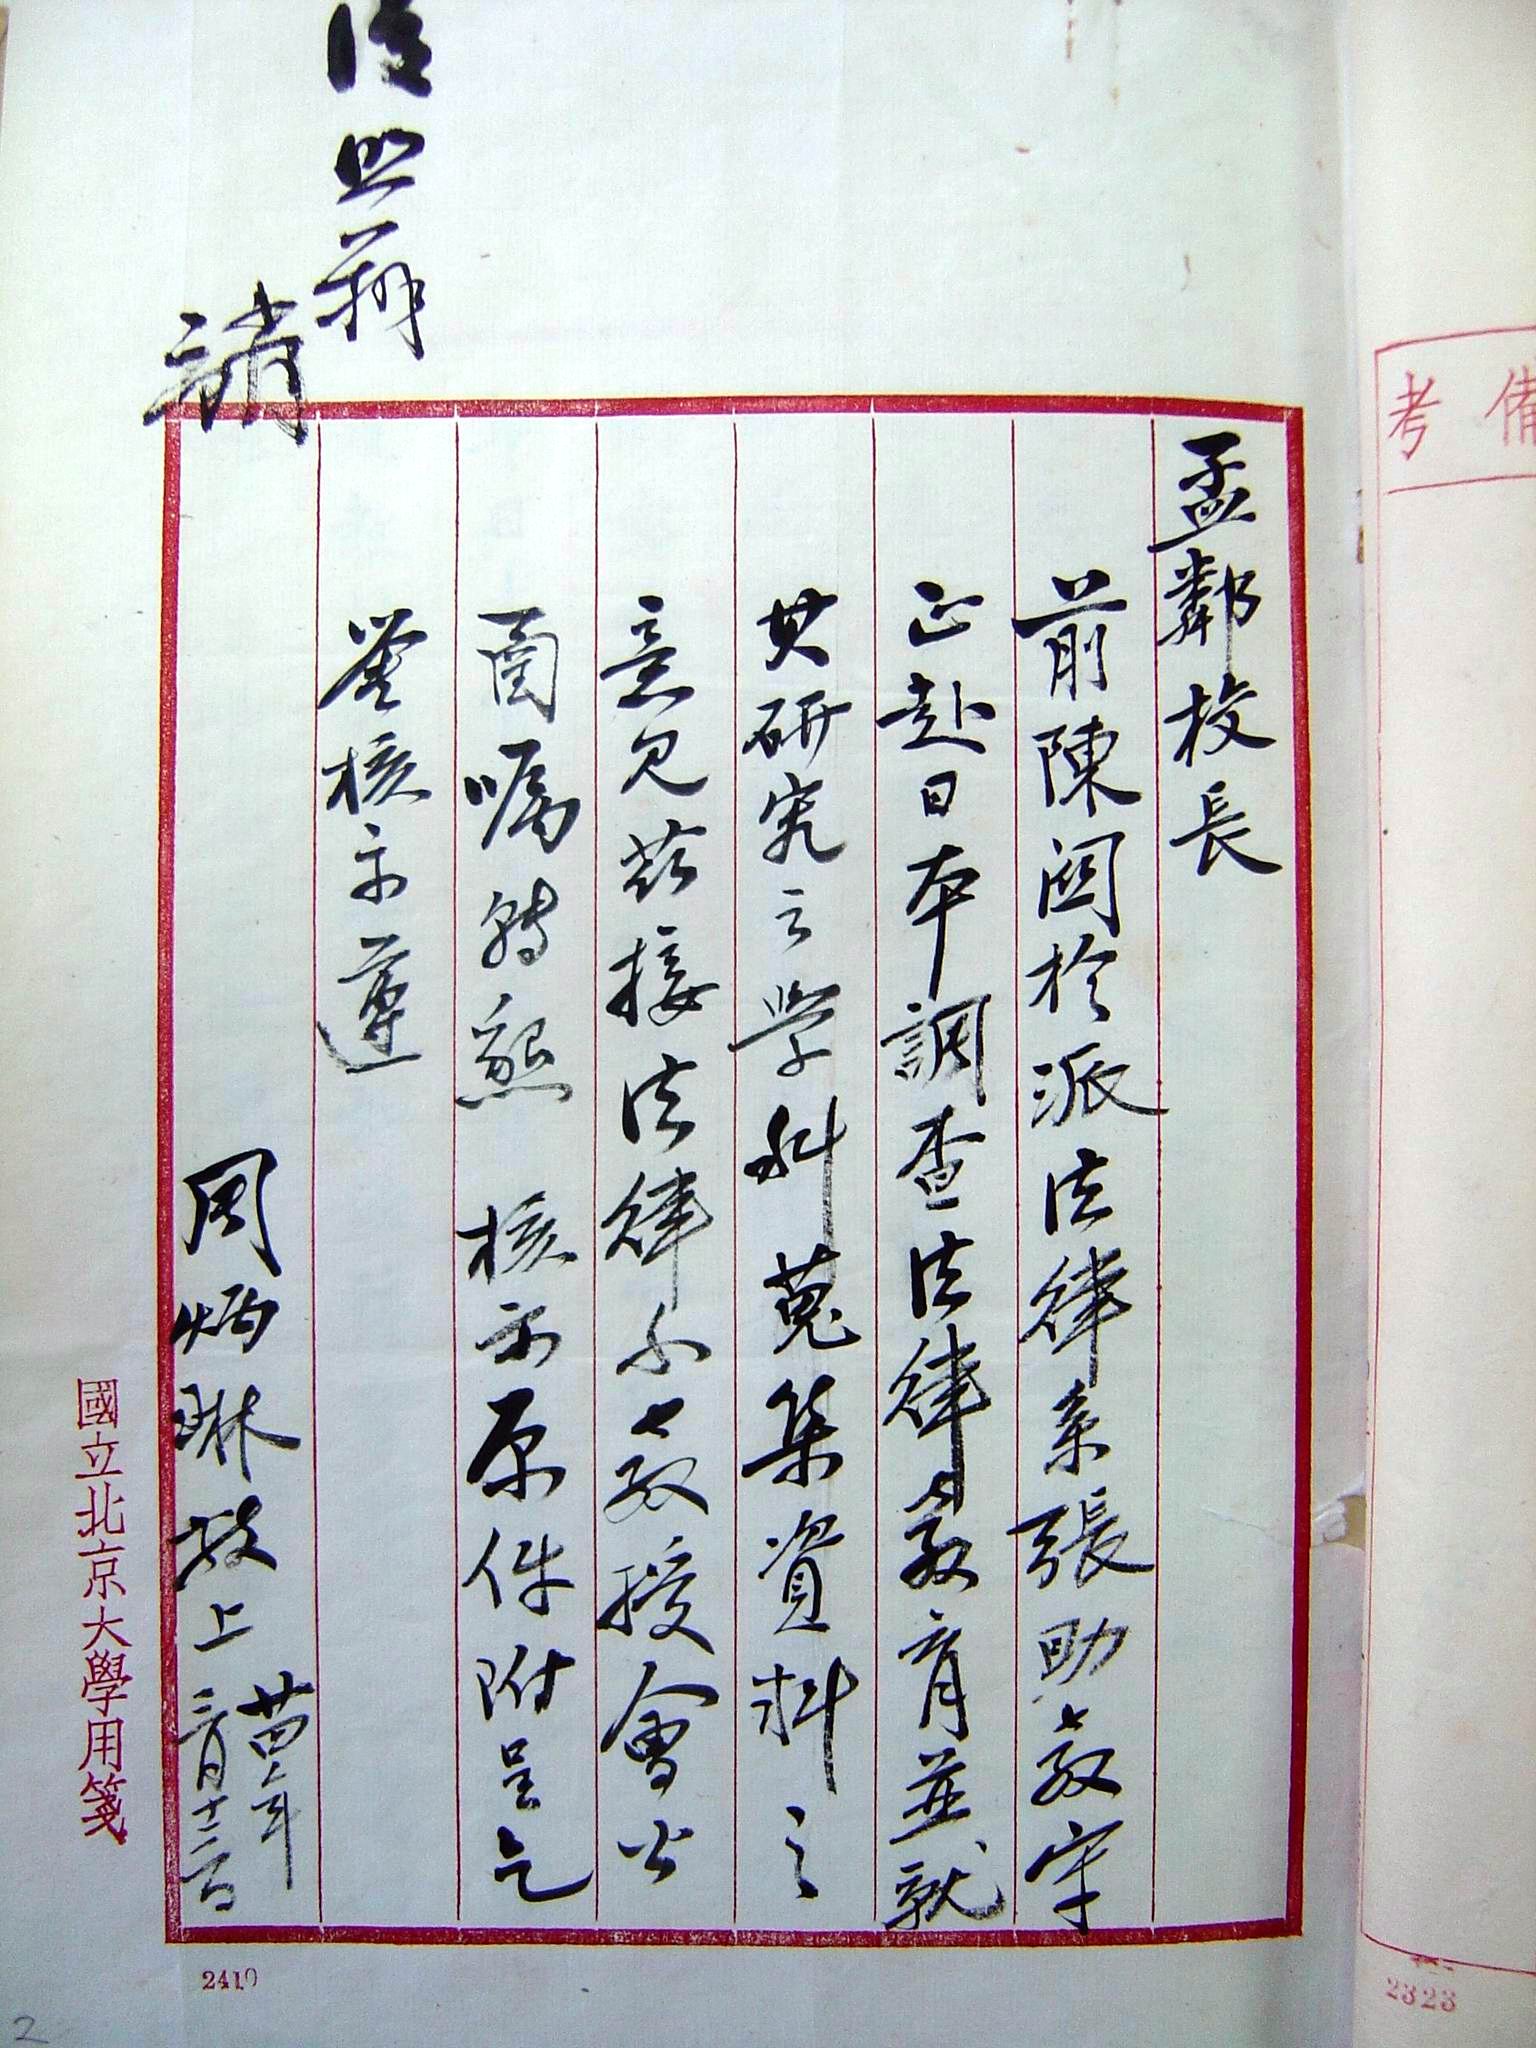 孟鄰校長
前陳関於派法律系張助教守
正赴日本調查法律教育並就
其研究之學科蒐集資料之
意見茲接法律系教授會公
函囑轉懇 核示原件附呈乞
鑒核示遵
周炳琳敬上 廿四年
三月十三日
請
照辦
國立北京大學用箋
2410
備考
2323
2